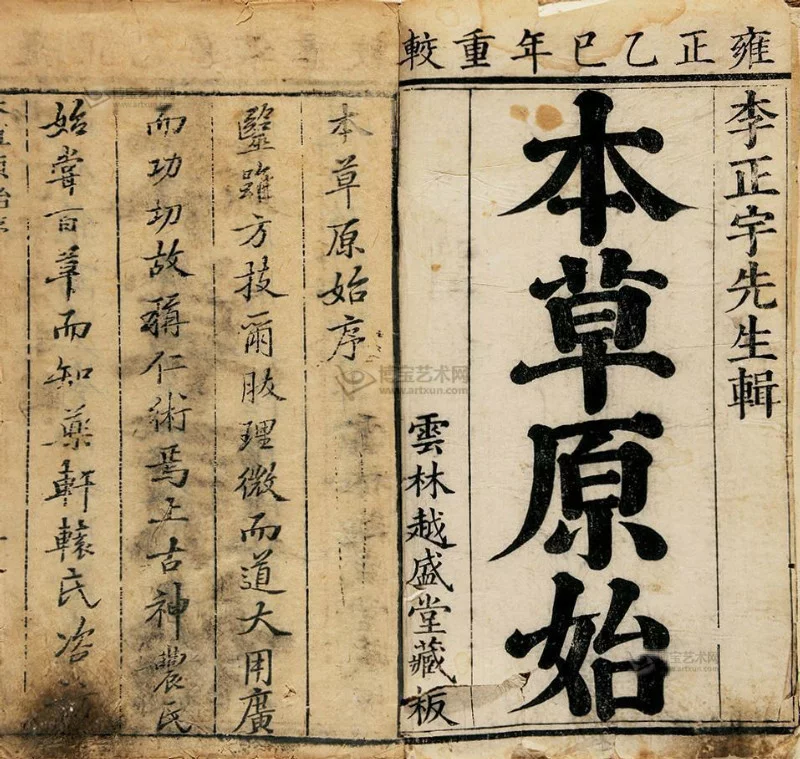 雍正乙巳年重較
李正宇先生輯
本草原始
雲林越盛堂藏板
本草原始序
毉雖方技爾肽理微而道大用廣
而功切故稱仁術焉上古神農氏
始嘗百草而知藥軒轅氏咨
博宝艺术网
www.artxun.com